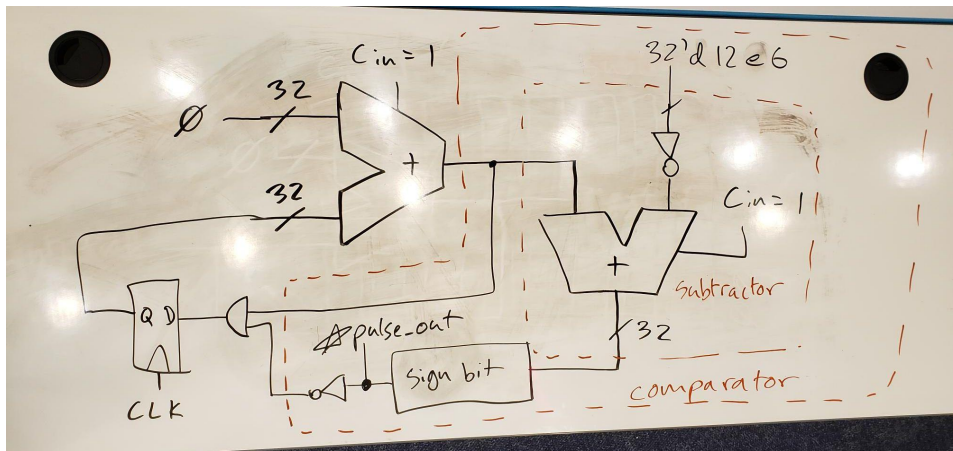 Cin = 1
32'd 12 e 6
32
Ø
+
32
Cin = 1
+
Subtractor
Q D
pulse_out
32
Sign bit
comparator
CLK